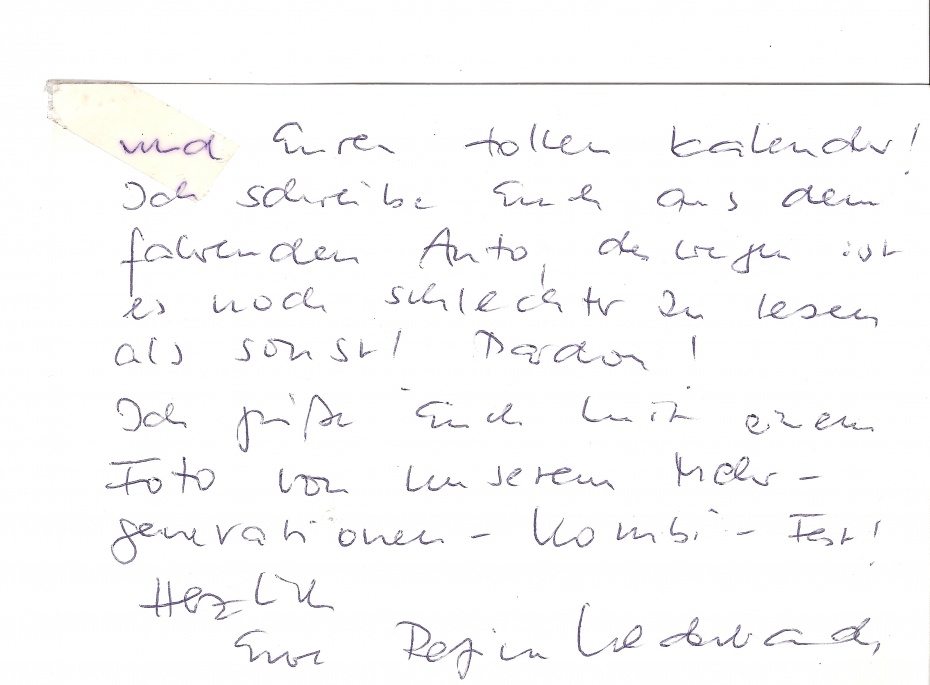 und Euren tollen Kalender!
Ich schreibe Euch aus dem
fahrenden Auto, deswegen ist
es noch schlechter zu lesen
als sonst! Pardon!
Ich grüße Euch mit einem
Foto von unserem Mehr-
generationen-Kombi-Fest!
Herzlich
Eure Regine